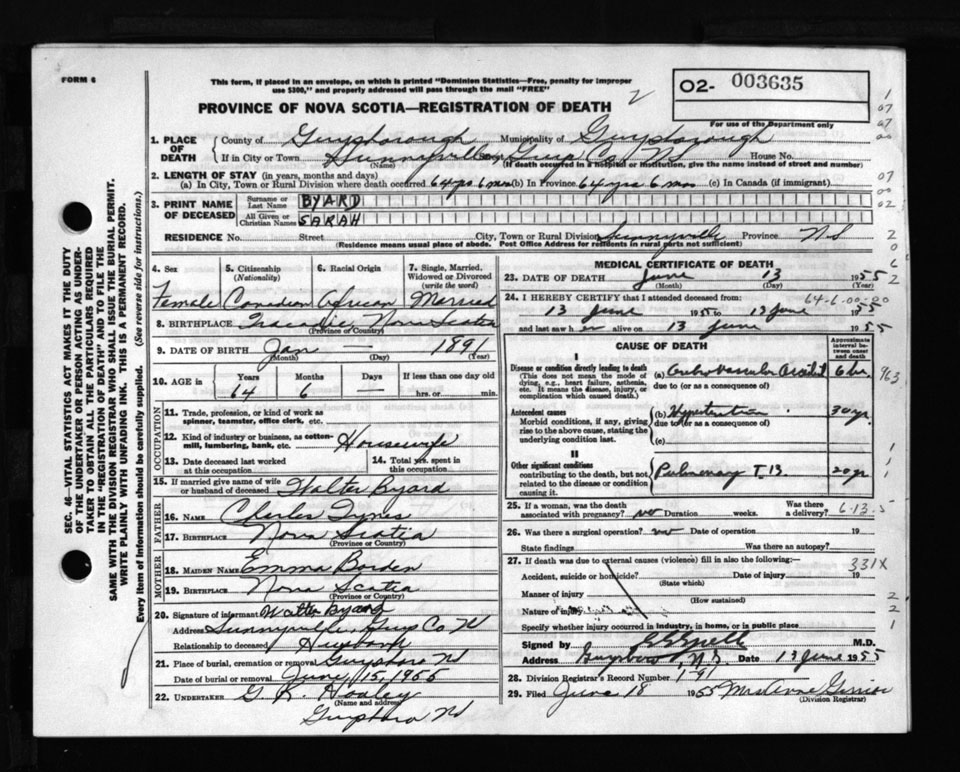 FORM 6
This form, if placed in an envelope, on which is printed "Dominion Statistics—Free, penalty for improper
use $300," and properly addressed will pass through the mail "FREE"
2
O2- 003635
For use of the Department only
PROVINCE OF NOVA SCOTIA—REGISTRATION OF DEATH
1. PLACE OF DEATH
County of Guysborough Municipality of Guysborough
If in City or Town Sunnyville Guys Co. N.S. House No.
(Name) (If death occurred in a hospital or institution, give the name instead of street and number)
2. LENGTH OF STAY (in years, months and days)
(a) In City, Town or Rural Division where death occurred 64 yrs 6 mos (b) In Province 64 yrs 6 mos (c) In Canada (if immigrant)
3. PRINT NAME OF DECEASED
Surname or Last Name BYARD
All Given or Christian Names SARAH
RESIDENCE No. Street City, Town or Rural Division Sunnyville Province N.S
(Residence means usual place of abode. Post Office Address for residents in rural parts not sufficient)
4. Sex 5. Citizenship (Nationality) 6. Racial Origin 7. Single, Married, Widowed or Divorced (write the word)
Female Canadian African Married
8. BIRTHPLACE Tracadie Nova Scotia
(Province or Country)
9. DATE OF BIRTH Jan — 1891
(Month) (Day) (Year)
10. AGE in Years Months Days If less than one day old
64 6 — hrs. or min.
OCCUPATION
11. Trade, profession, or kind of work as spinner, teamster, office clerk, etc.
12. Kind of industry or business, as cotton-mill, lumbering, bank, etc. Housewife
13. Date deceased last worked at this occupation
14. Total yrs. spent in this occupation
15. If married give name of wife or husband of deceased Walter Byard
FATHER
16. NAME Charles Tynes
17. BIRTHPLACE Nova Scotia
(Province or Country)
MOTHER
18. MAIDEN NAME Emma Borden
19. BIRTHPLACE Nova Scotia
(Province or Country)
20. Signature of informant Walter Byard
Address Sunnyville Guys Co N
Relationship to deceased Husband
21. Place of burial, cremation or removal Guysboro N
Date of burial or removal June 15, 1955
22. UNDERTAKER G. R.
(Name and address)
Guysboro N
MEDICAL CERTIFICATE OF DEATH
23. DATE OF DEATH June 13 1955
(Month) (Day)
64-6-00-20
24. I HEREBY CERTIFY that I attended deceased from:
13 June 1955 to 13 June 1955
and last saw her alive on 13 June 1955
CAUSE OF DEATH
Approximate interval between onset and death
I
Disease or condition directly leading to death
(This does not mean the mode of dying, e.g., heart failure, asthenia, etc. It means the disease, injury, or complication which caused death.)
(a) Cerebrovascular Accident 6 hr.
due to (or as a consequence of)
Antecedent causes
Morbid conditions, if any, giving rise to the above cause, stating the underlying condition last.
(b) Hypertension 30 yr
due to (or as a consequence of)
(c)
II
Other significant conditions
contributing to the death, but not related to the disease or condition causing it.
Pulmonary T.B. 20 yr
25. If a woman, was the death associated with pregnancy? no Duration weeks. Was there a delivery?
6-13-5
26. Was there a surgical operation? no Date of operation 19
State findings Was there an autopsy?
27. If death was due to external causes (violence) fill in also the following:
331X
Accident, suicide or homicide? Date of injury 19
(State which)
Manner of injury
(How sustained)
Nature of injury
Specify whether injury occurred in industry, in home, or in public place
Signed by M.D.
Address Guysboro, N.S. Date 13 June 1955
28. Division Registrar's Record Number 191
29. Filed June 18 1955 Mrs Anne
(Division Registrar)
SEC. 46—VITAL STATISTICS ACT MAKES IT THE DUTY
OF THE UNDERTAKER OR PERSON ACTING AS UNDER-
TAKER TO OBTAIN ALL THE PARTICULARS REQUIRED
IN THE "REGISTRATION OF DEATH" AND TO FILE THE
SAME WITH THE DIVISION REGISTRAR WHO SHALL ISSUE THE BURIAL PERMIT.
WRITE PLAINLY WITH UNFADING INK. THIS IS A PERMANENT RECORD.
Every item of information should be carefully supplied. (See reverse side for instructions.)